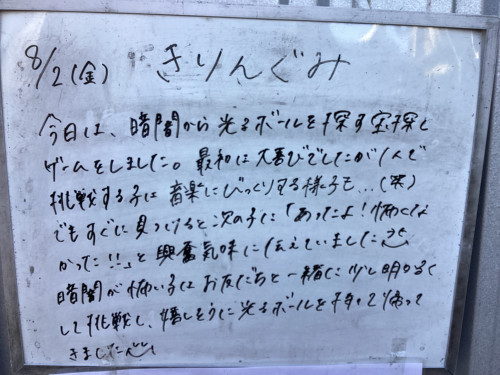 8/2(金) きりんぐみ
今日は、暗闇から光るボールを探す宝探し
ゲームをしました。最初は大喜びでしたが1人で
挑戦する子は音楽にびっくりする様子も...(笑)
でもすぐに見つけると次の子に「あったよ!怖くな
かった!!」と興奮気味に伝えていました
暗闇が怖い子はお友だちと一緒に少し明るく
して挑戦し、嬉しそうに光るボールを持って帰って
きました